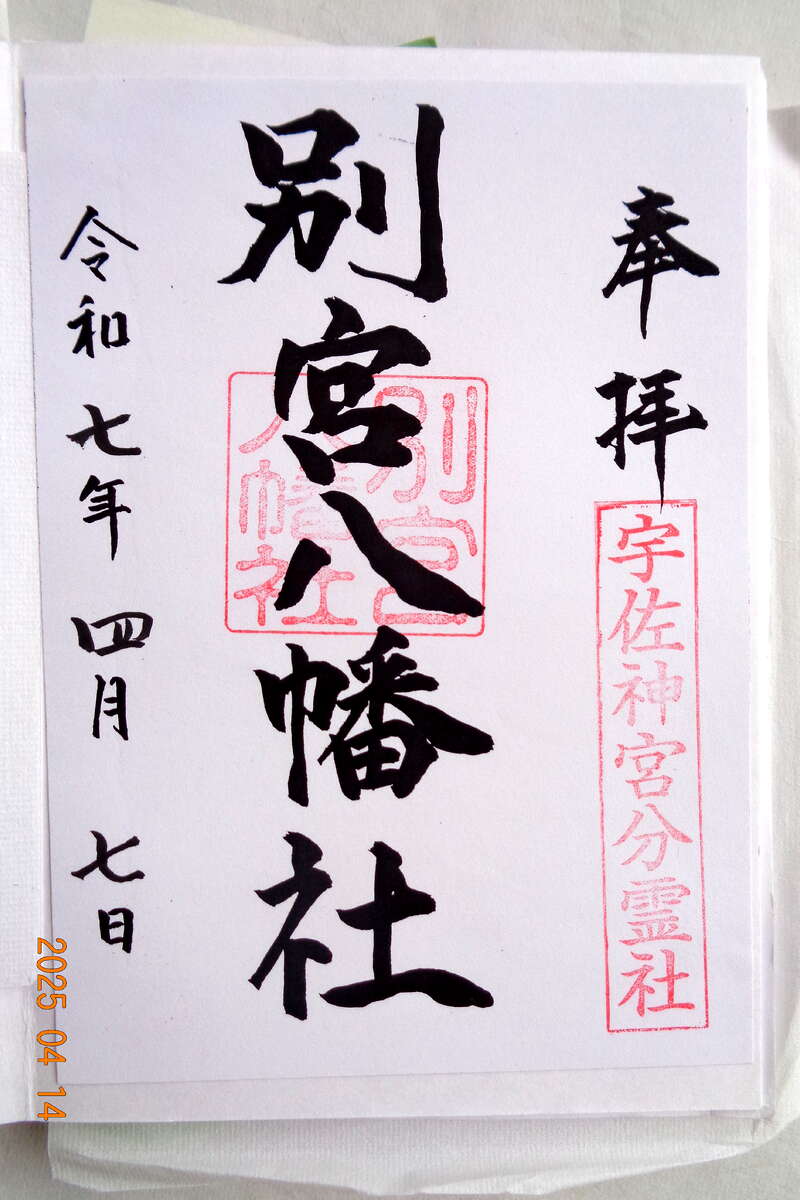 奉拝
宇佐神宮分霊社
別宮八幡社
別宮
八幡社
令和七年四月七日
2025 04 14